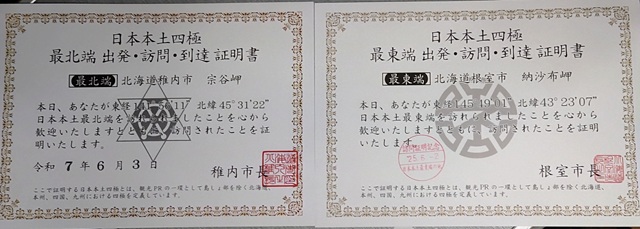 日本本土四極
最北端 出発・訪問・到達 証明書
【最北端】北海道稚内市 宗谷岬
本日、あなたが東経141°56'11" 北緯45°31'22"
日本本土最北端を訪れられましたことを心から
歓迎いたしますとともに、訪問されたことを証
明いたします。
令和 7 年 6 月 3 日
稚内市長
ここで証明する日本本土四極とは、観光PRの一環として島しょ部を除く北海道、
本州、四国、九州における四極を定義しています。
日本本土四極
最東端 出発・訪問・到達 証明書
【最東端】北海道根室市 納沙布岬
本日、あなたが東経145°49'01" 北緯43°23'07"
日本本土最東端を訪れられましたことを心から
歓迎いたしますとともに、訪問されたことを証明
いたします。
根室市長
ここで証明する日本本土四極とは、観光PRの一環として島しょ部を除く北海道、
本州、四国、九州における四極を定義しています。